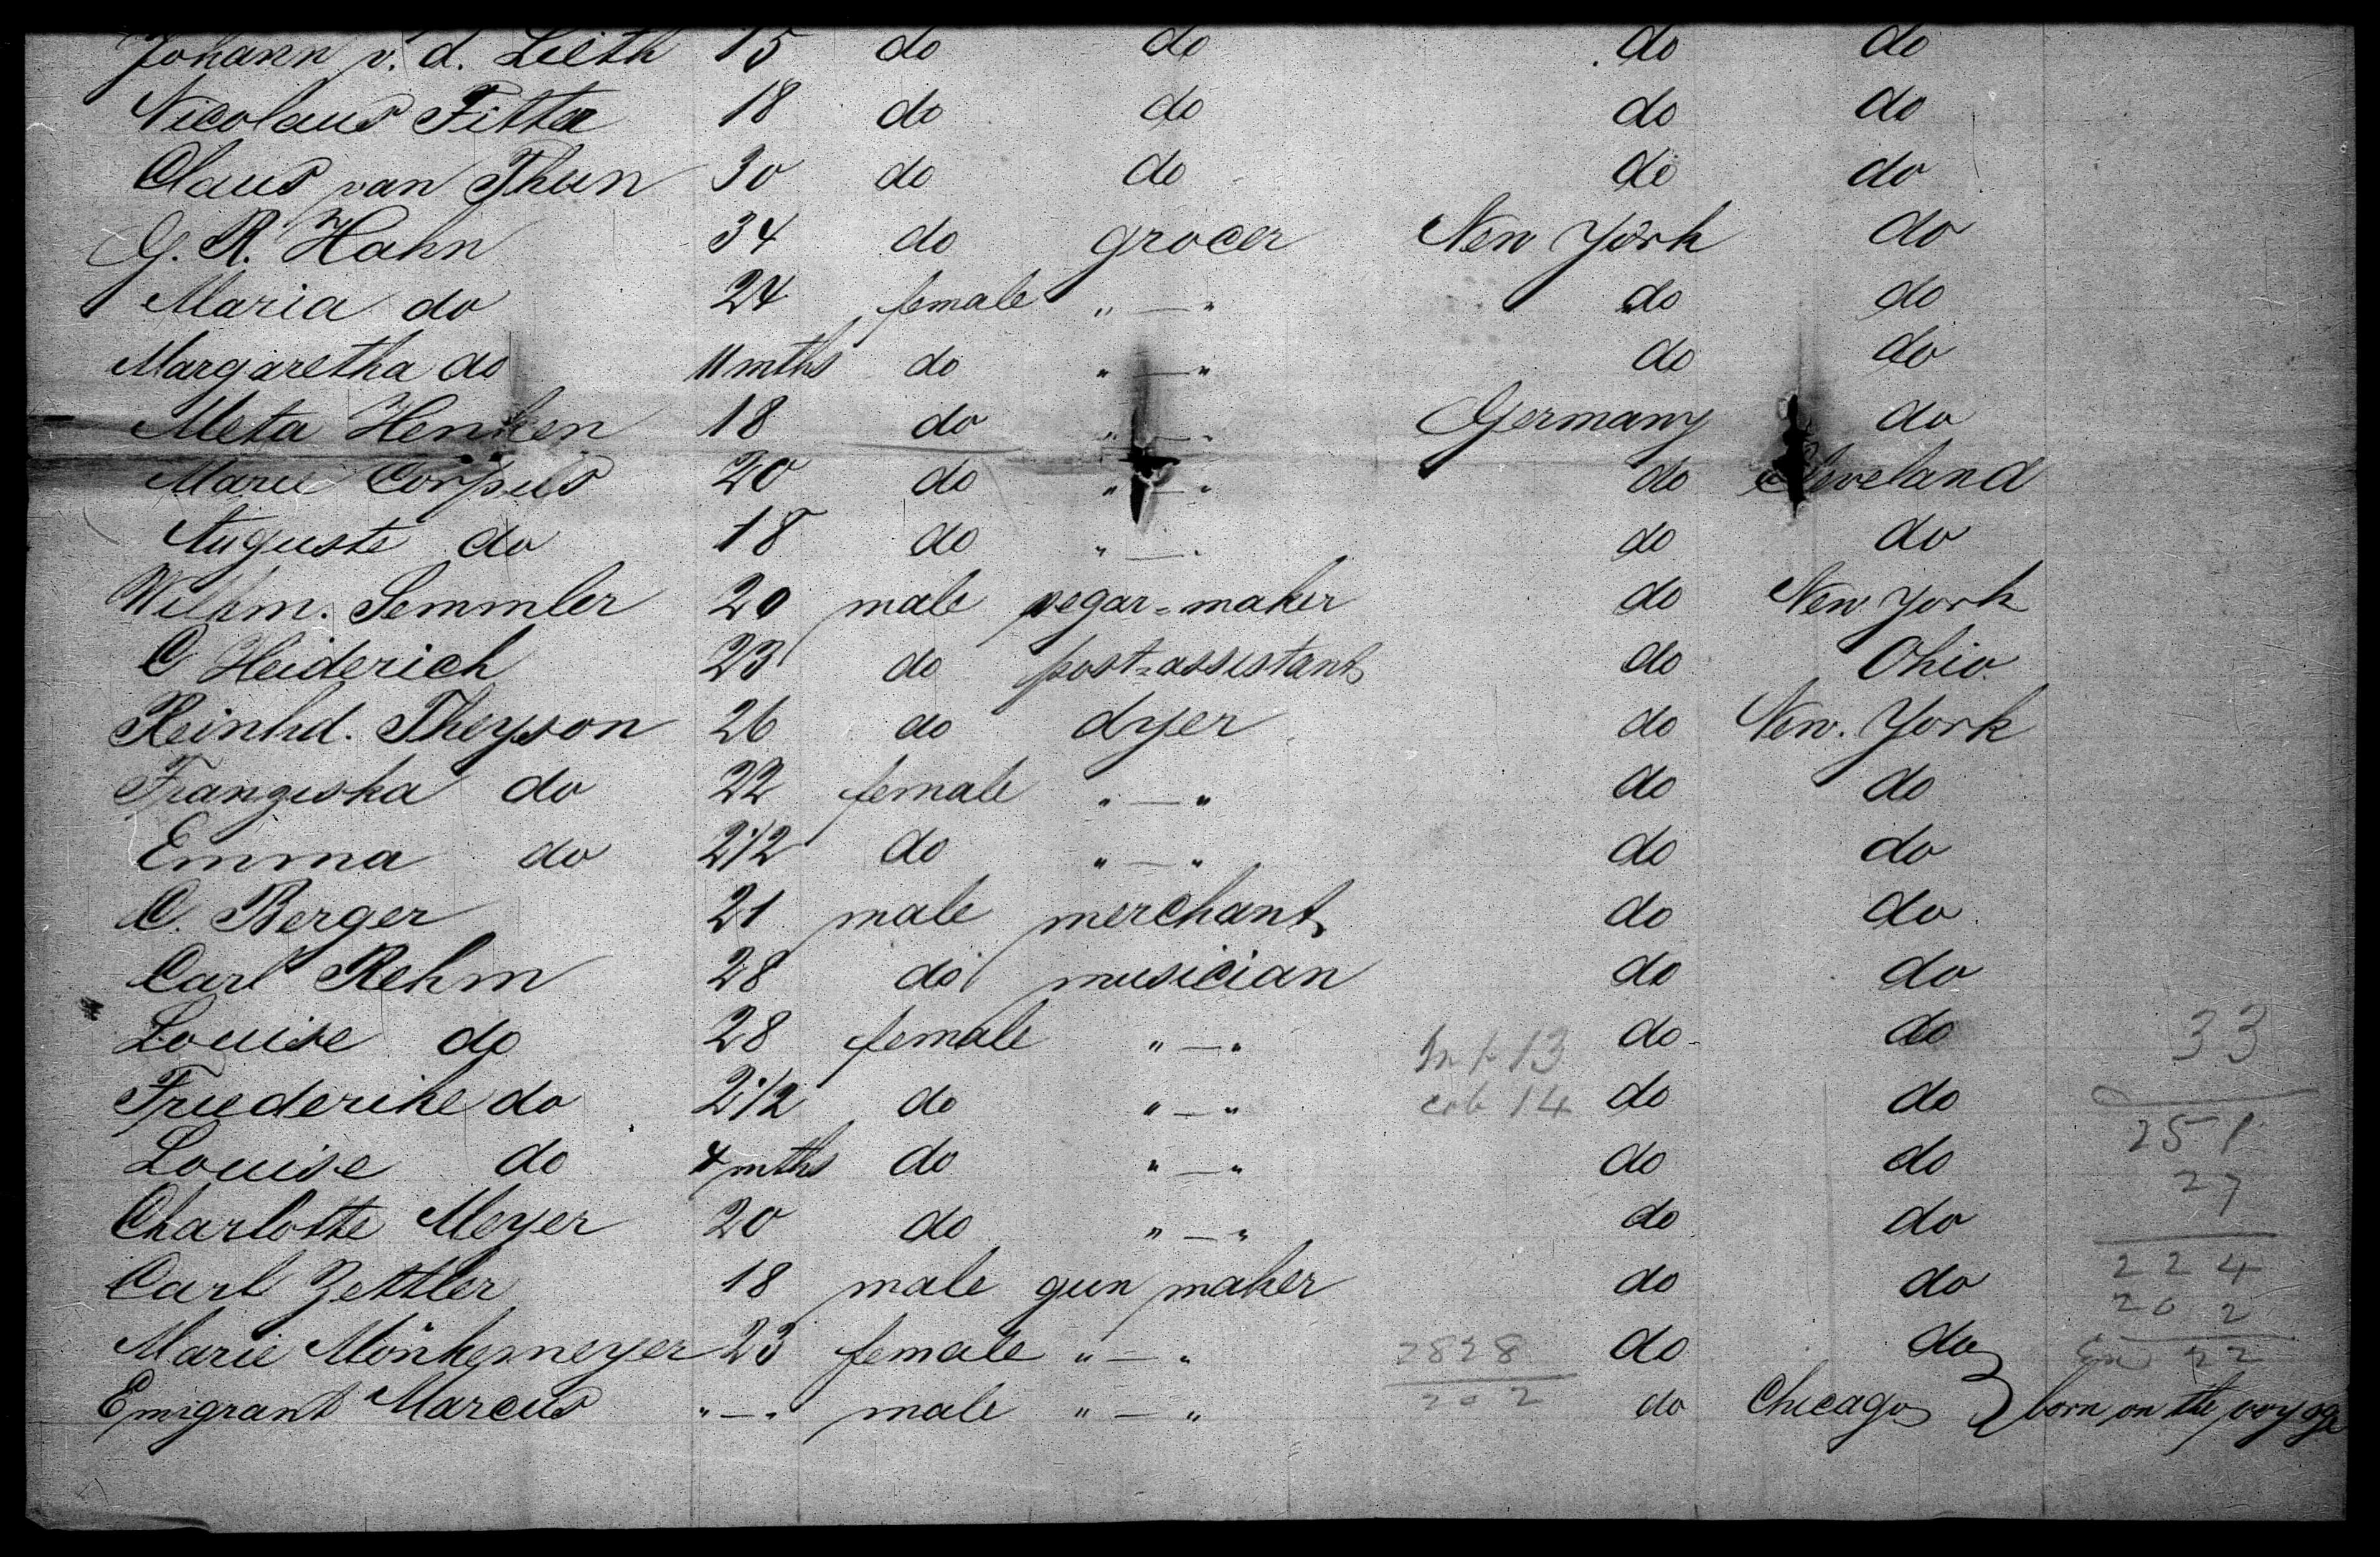 Johann v. d. Lieth 15 do do do do
Nicolaus Fitter 18 do do do do
Claus van Thun 30 do do do do
G. R. Hahn 34 do grocer New York do
Maria do 24 female " — " do do
Margaretha do 11 mths do " — " do do
Meta Henken 18 do " — " Germany do
Marie Corpus 20 do " — " do Cleveland
Auguste do 18 do " — " do do
Wilhm. Semmler 20 male segar-maker do New York
C Heiderich 23 do post-assistant do Ohio.
Reinhd. Theyson 26 do dyer do New. York
Franziska do 22 female " — " do do
Emma do 2 1/2 do " — " do do
C. Berger 21 male merchant do do
Carl Rehm 28 do musician do do
Louise do 28 female " — " 13 do do 33
Friederike do 2 1/2 do " — " 14 do do 251
Louise do 4 mths do " — " do do 27
Charlotte Meyer 20 do " — " do do
Carl Zettler 18 male gun maker do do 224
202
Marie Mönkemeyer 23 female " — " 2828 do do 22
Emigrant Marcus " — " male " — " 202 do Chicago } born on the voyage